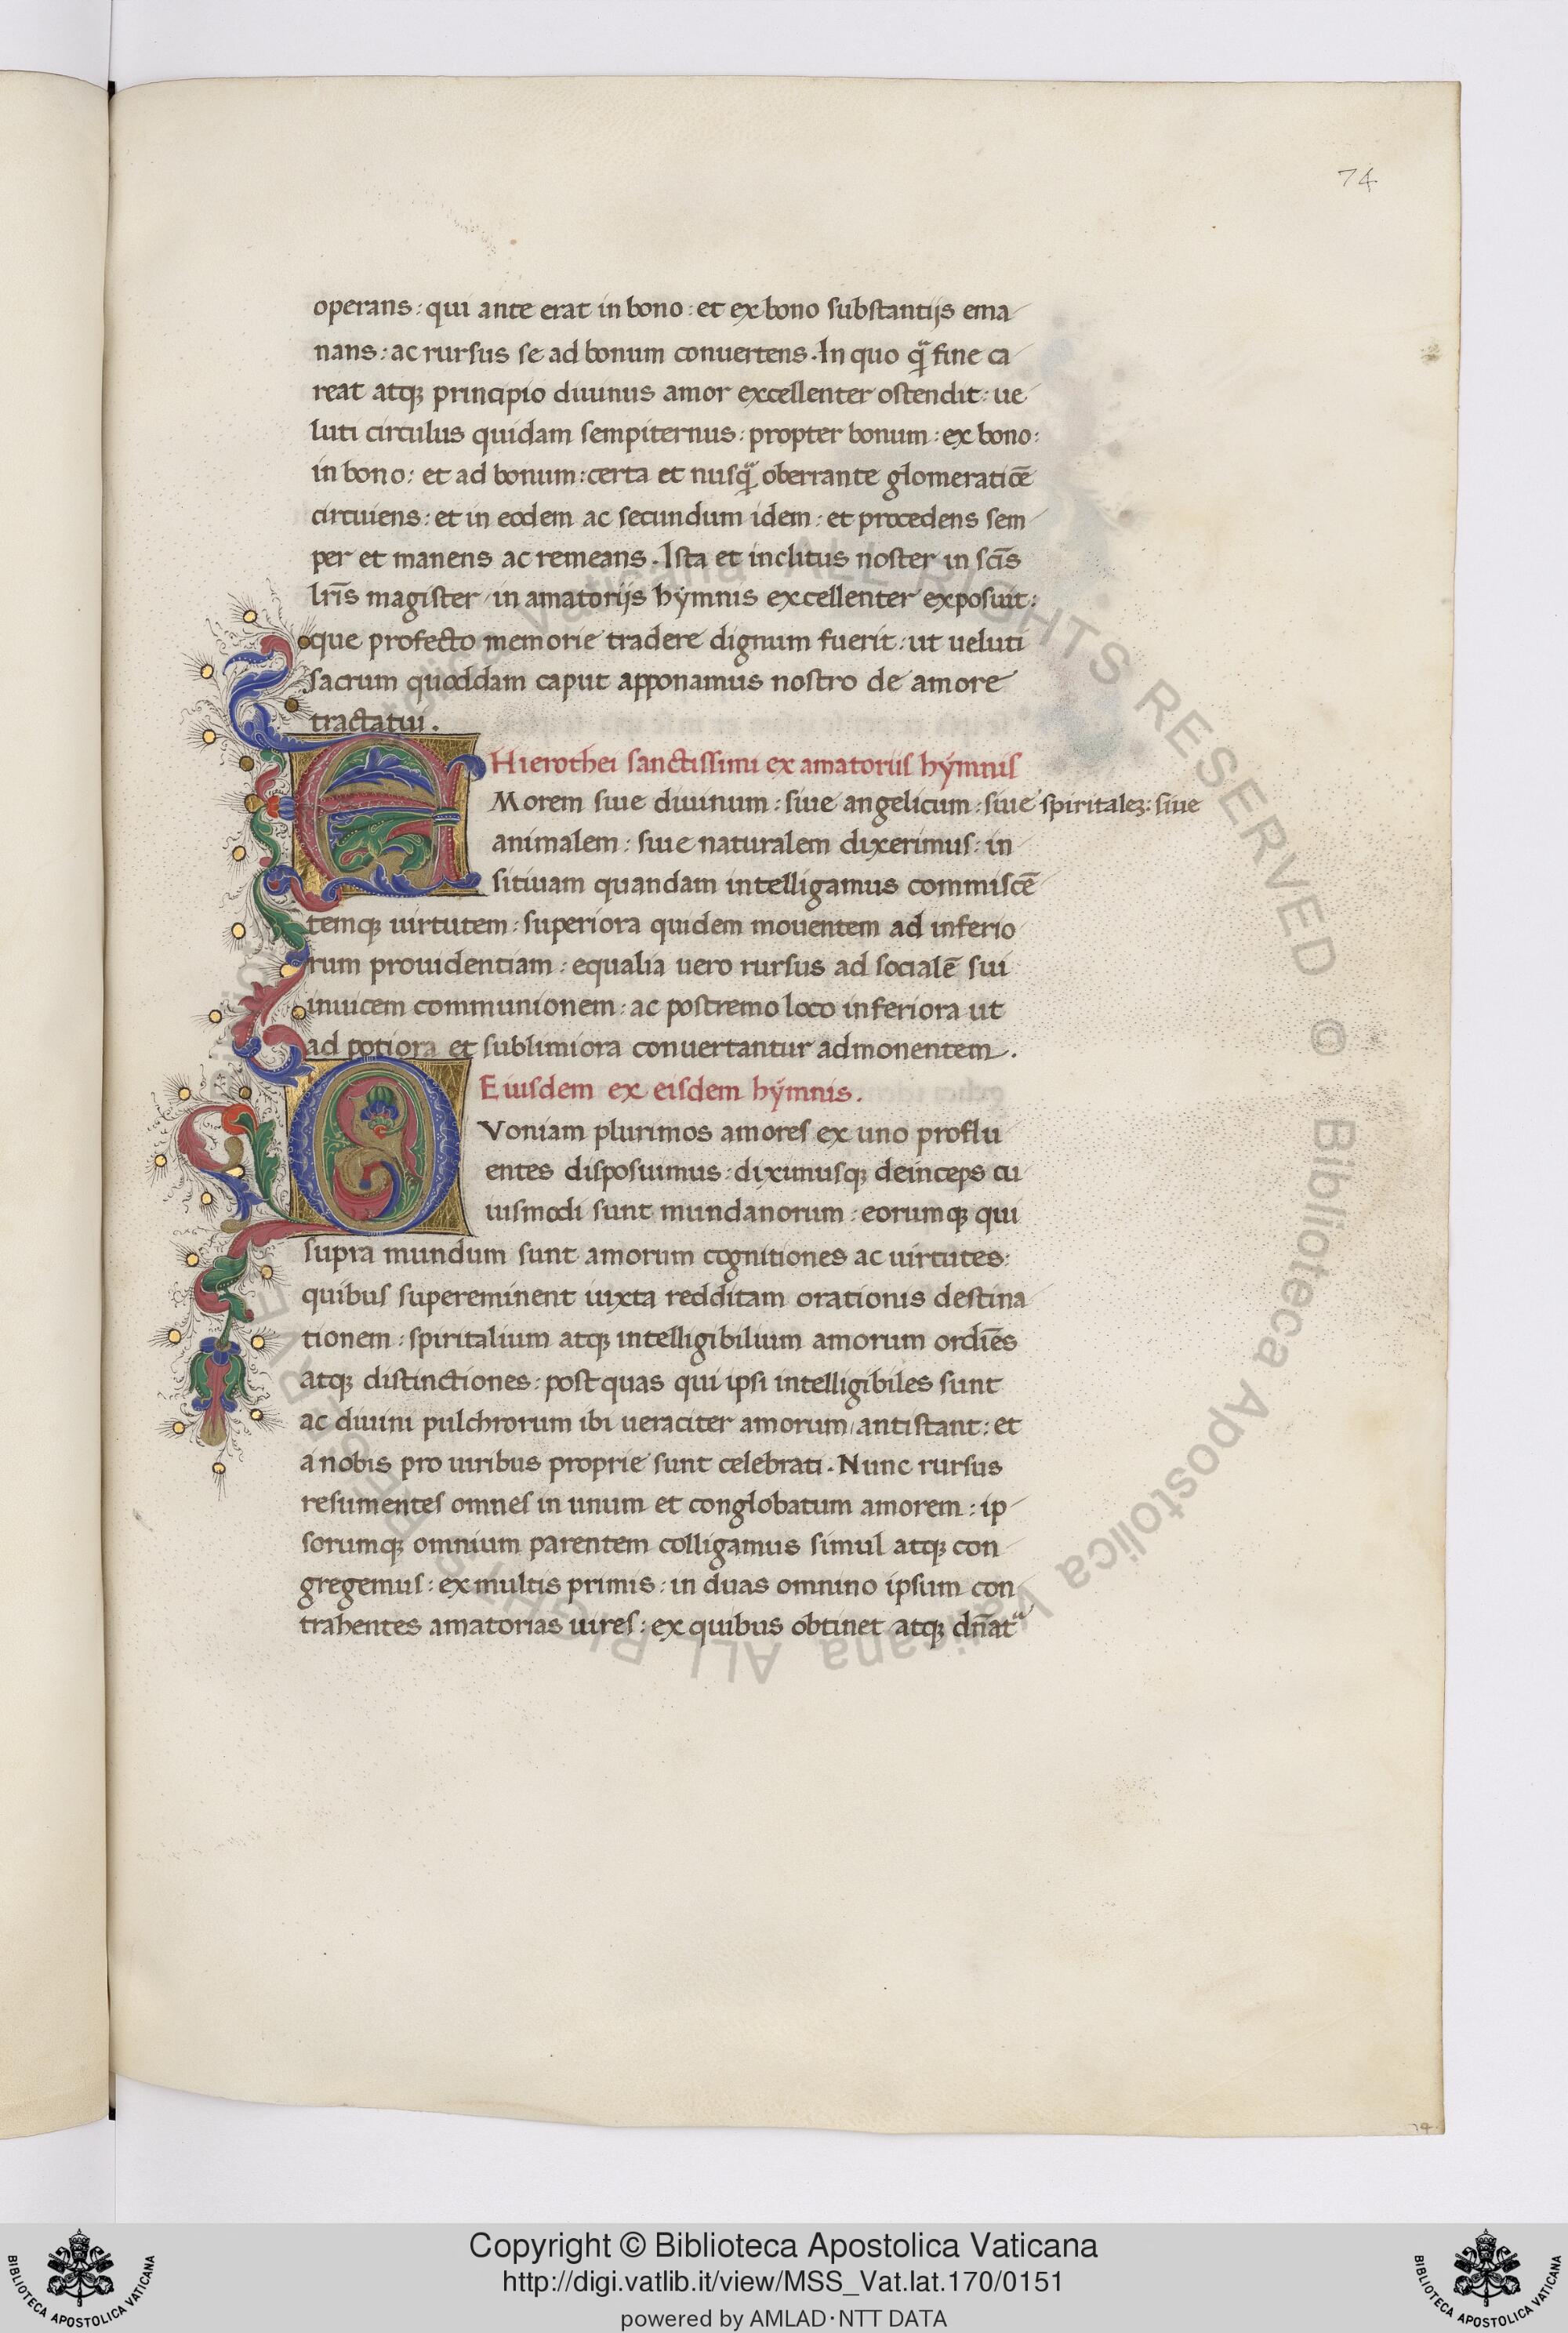 74
operans: qui ante erat in bono: et ex bono substantijs ema-
nans: ac rursus se ad bonum conuertens. In quo q̃ fine ca-
reat atqꝫ principio diuinus amor excellenter ostendit: ue
luti circulus quidam sempiternus: propter bonum: ex bono:
in bono: et ad bonum: certa et nusq̃ oberrante glomeratiōe
circuiens: et in eodem ac secundum idem: et procedens sem-
per et manens ac remeans. Ista et inclitus noster in scīs
lrīs magister in amatorijs hẏmnis excellenter exposuit:
que profecto memorie tradere dignum fuerit: ut ueluti
sacrum quoddam caput apponamus nostro de amore
tractatui.
Hierothei sanctissimi ex amatoriis hẏmnis
AMorem siue diuinum: siue angelicum: siue spiritaleꝫ: siue
animalem: siue naturalem dixerimus: in-
sitiuam quandam intelligamus commiscē
temqꝫ uirtutem: superiora quidem mouentem ad inferio
rum prouidentiam: equalia uero rursus ad socialē sui
inuicem communionem: ac postremo loco inferiora ut
ad potiora et sublimiora conuertantur admonentem.
Eiusdem ex eisdem hẏmnis.
QVoniam plurimos amores ex uno proflu-
entes disposuimus: diximusqꝫ deinceps cu-
iusmodi sunt mundanorum: eorumqꝫ qui
supra mundum sunt amorum cognitiones ac uirtutes:
quibus supereminent iuxta redditam orationis destina-
tionem: spiritalium atqꝫ intelligibilium amorum ordiēs
atqꝫ distinctiones: post quas qui ipsi intelligibiles sunt
ac diuini pulchrorum ibi ueraciter amorum antistant: et
a nobis pro uiribus proprie sunt celebrati. Nunc rursus
resumentes omnes in unum et conglobatum amorem: ip-
sorumqꝫ omnium parentem colligamus simul atqꝫ con-
gregemus: ex multis primis: in duas omnino ipsum con-
trahentes amatorias uires: ex quibus obtinet atqꝫ dn̄atᵃ
Copyright © Biblioteca Apostolica Vaticana
http://digi.vatlib.it/view/MSS_Vat.lat.170/0151
powered by AMLAD·NTT DATA
BIBLIOTECA APOSTOLICA VATICANA
BIBLIOTECA APOSTOLICA VATICANA